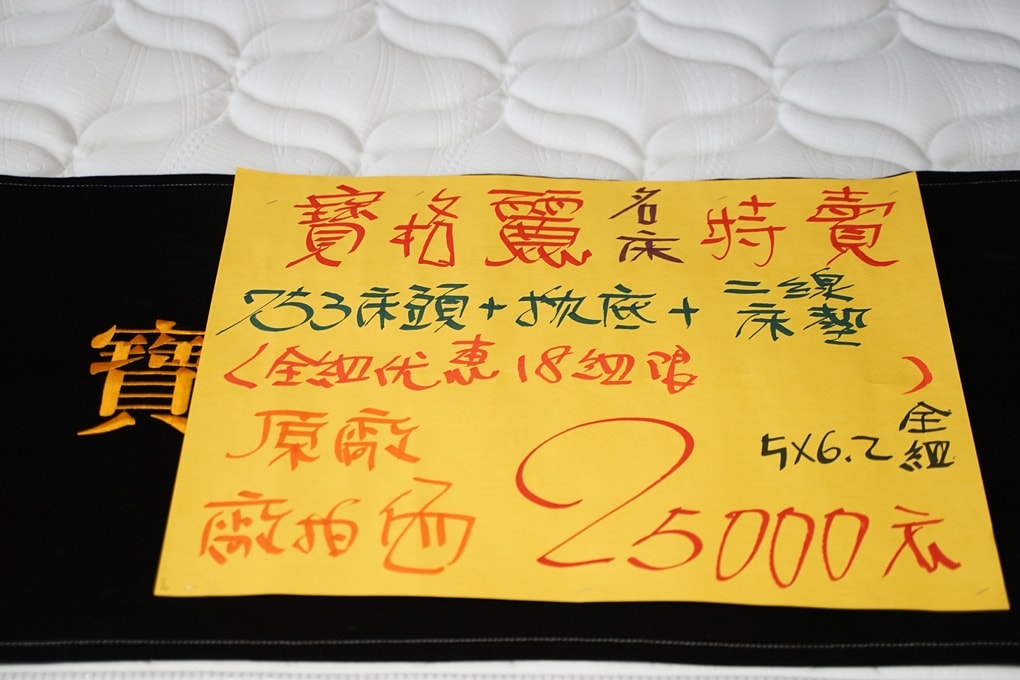 寶格麗名床特賣
753床頭+掀底+二線床墊
(全組优惠18組限)
原廠
5X6.2全組
廠拍価
25000元
寶